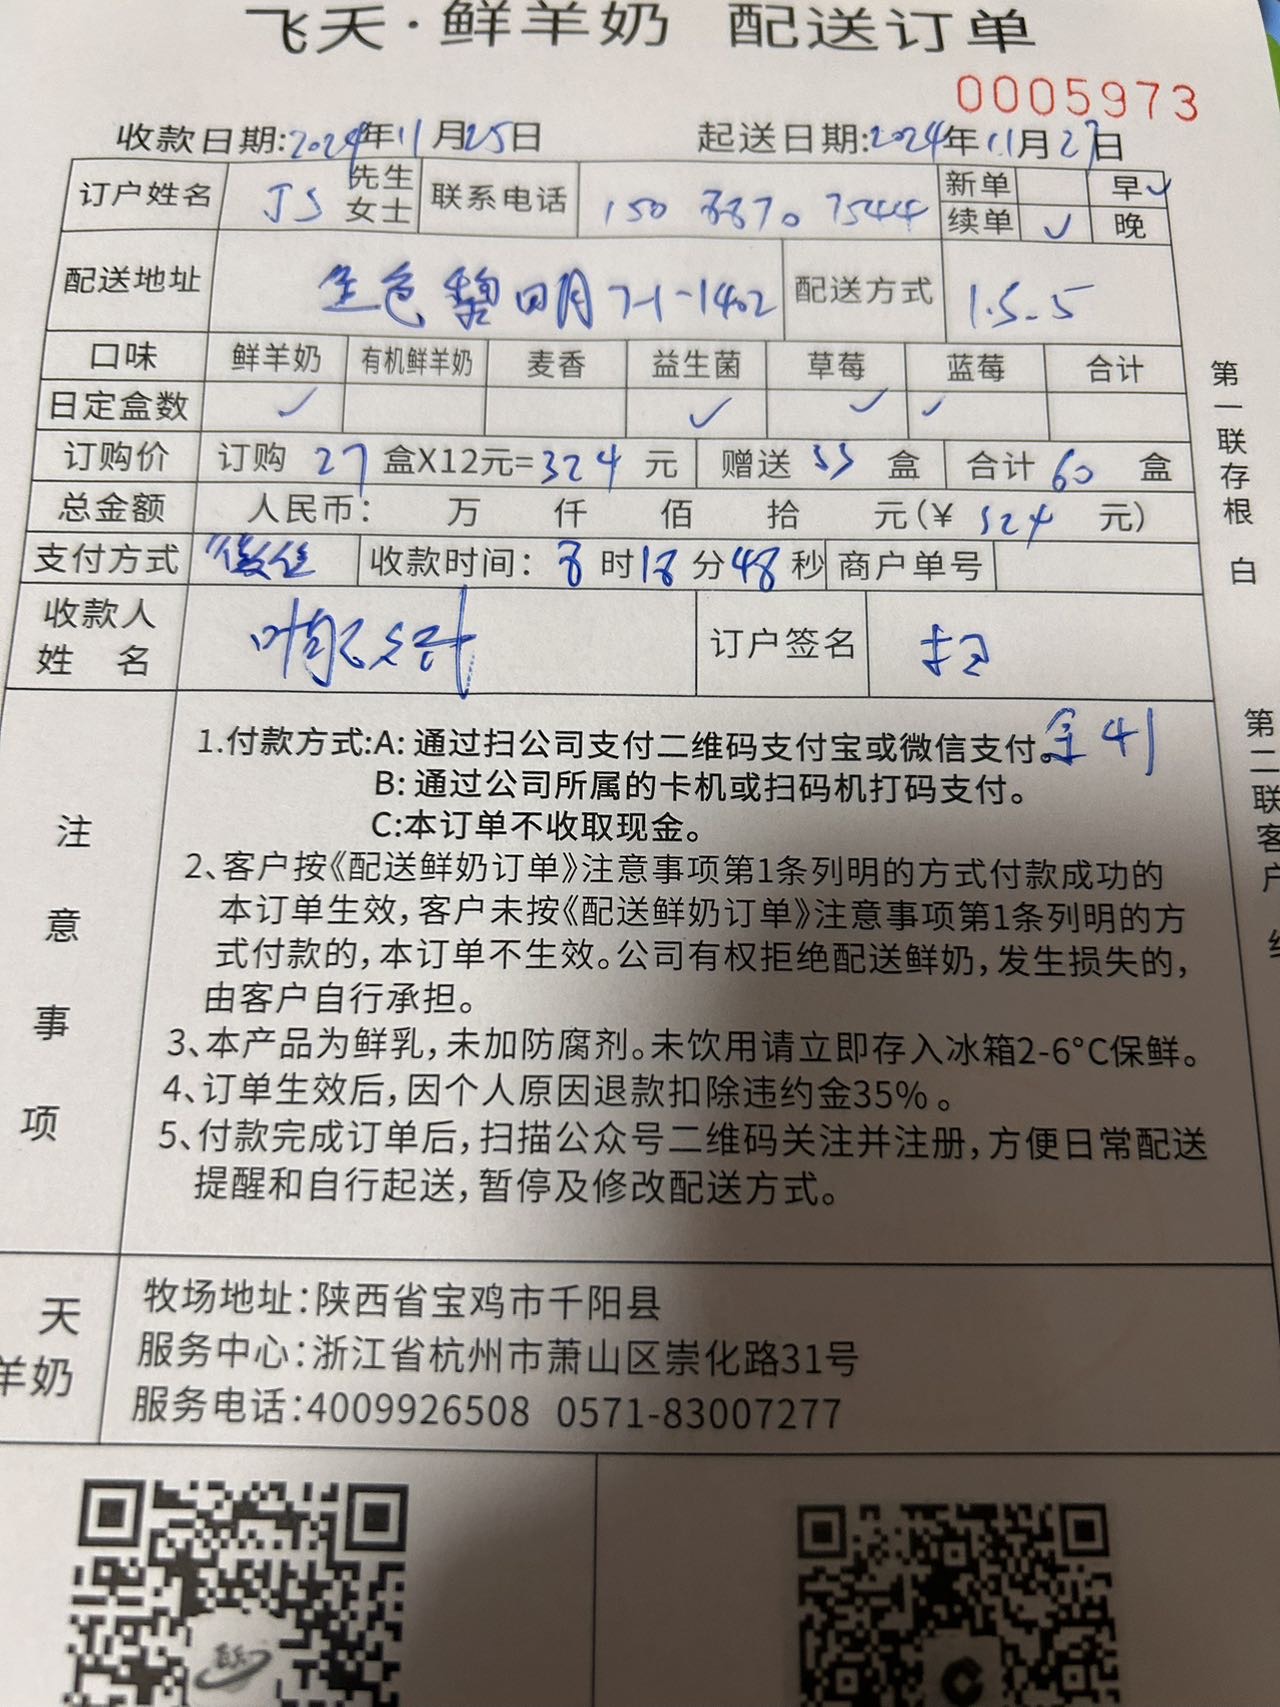 飞天·鲜羊奶 配送订单
0005973
收款日期:2024年11月25日 起送日期:2024年11月27日
订户姓名 JS 先生 女士 联系电话 150 8870 7544 新单 早✓ 续单 ✓ 晚
配送地址 金色黎明7-1-1402 配送方式 1.3.5
口味 鲜羊奶 有机鲜羊奶 麦香 益生菌 草莓 蓝莓 合计
日定盒数 ✓ ✓ ✓ ✓
订购价 订购 27 盒X12元=324 元 赠送 33 盒 合计 60 盒
总金额 人民币: 万 仟 佰 拾 元(¥ 324 元)
支付方式 微信 收款时间: 8 时 18 分 48 秒 商户单号
收款人
姓 名 订户签名 扫
注意事项
1.付款方式:A: 通过扫公司支付二维码支付宝或微信支付。
B: 通过公司所属的卡机或扫码机打码支付。
C:本订单不收取现金。
2、客户按《配送鲜奶订单》注意事项第1条列明的方式付款成功的
本订单生效,客户未按《配送鲜奶订单》注意事项第1条列明的方
式付款的,本订单不生效。公司有权拒绝配送鲜奶,发生损失的,
由客户自行承担。
3、本产品为鲜乳,未加防腐剂。未饮用请立即存入冰箱2-6°C保鲜。
4、订单生效后,因个人原因退款扣除违约金35%。
5、付款完成订单后,扫描公众号二维码关注并注册,方便日常配送
提醒和自行起送,暂停及修改配送方式。
天
羊奶
牧场地址:陕西省宝鸡市千阳县
服务中心:浙江省杭州市萧山区崇化路31号
服务电话:4009926508 0571-83007277
第一联存根 白
第二联客户